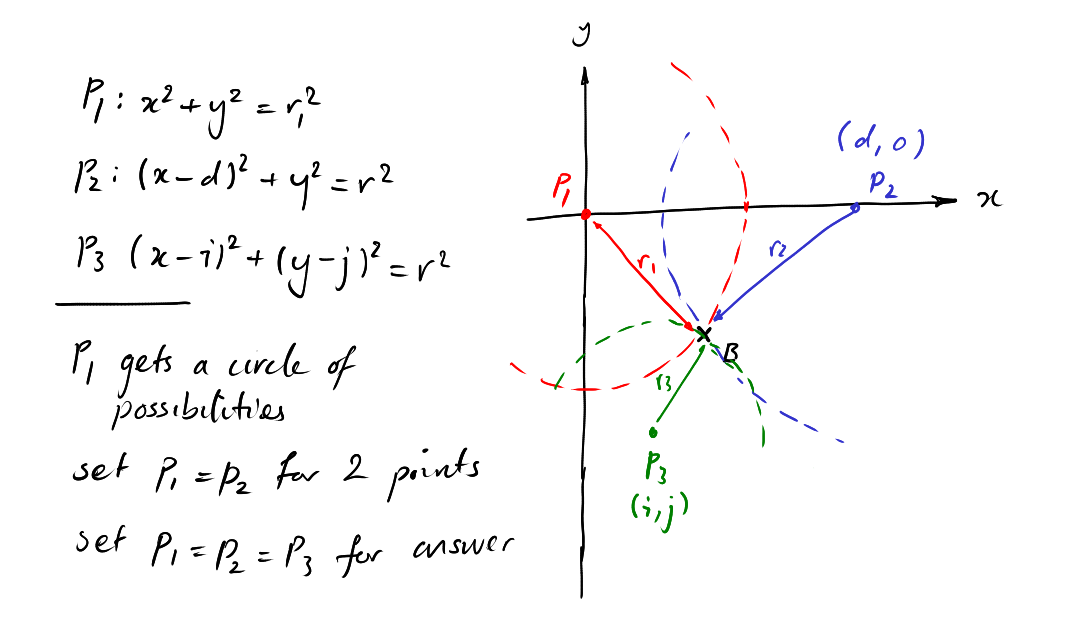 P₁: x² + y² = r₁²
P₂: (x-d)² + y² = r²
P₃ (x-i)² + (y-j)² = r²
P₁ gets a circle of
possibilities
set P₁ = P₂ for 2 points
set P₁ = P₂ = P₃ for answer
y
(d, 0)
P₂
x
P₁
r₁
r₂
B
r₃
P₃
(i,j)